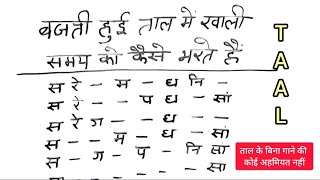 बजती हुई ताल में खाली
समय को कैसे भरते हैं
स रे - म - ध नि -
स रे - - प ध - सां
स रे ग - - ध - -
स - - म - ध - सां
स - ग - प - नि सा
स - - - - - - सा
TAAL
ताल के बिना गाने की
कोई अहमियत नहीं